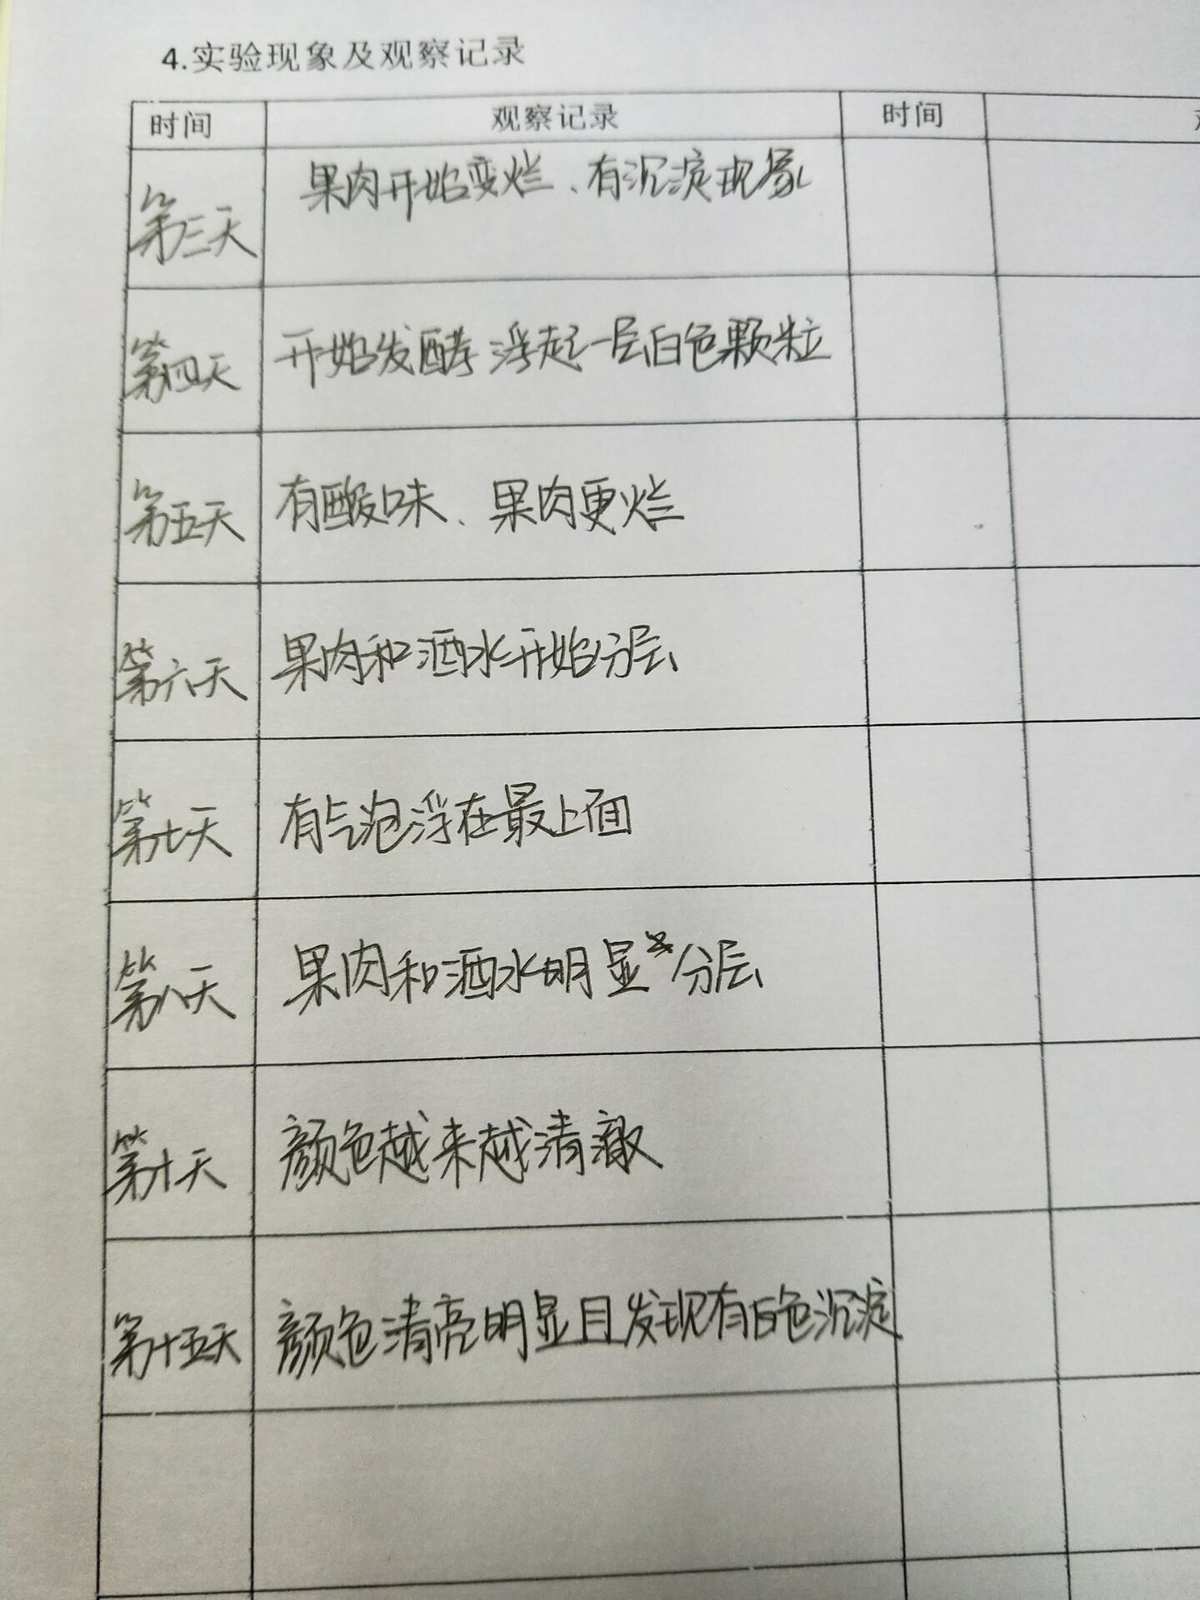 4.实验现象及观察记录
时间 观察记录 时间
第三天 果肉开始变烂、有沉淀现象
第四天 开始发酵 浮起一层白色颗粒
第五天 有酸味、果肉更烂
第六天 果肉和酒水开始分层
第七天 有气泡浮在最上面
第八天 果肉和酒水明显分层
第十天 颜色越来越清澈
第十五天 颜色清亮明显且发现有白色沉淀